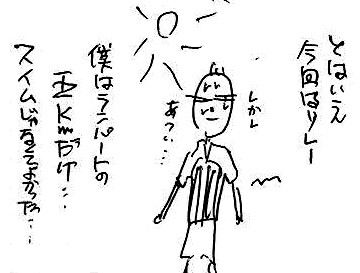 とはいえ
今回はリレー
しかし
あつい…
僕はランパートの
5Kmだけ…
スイムじゃなくてよかった…